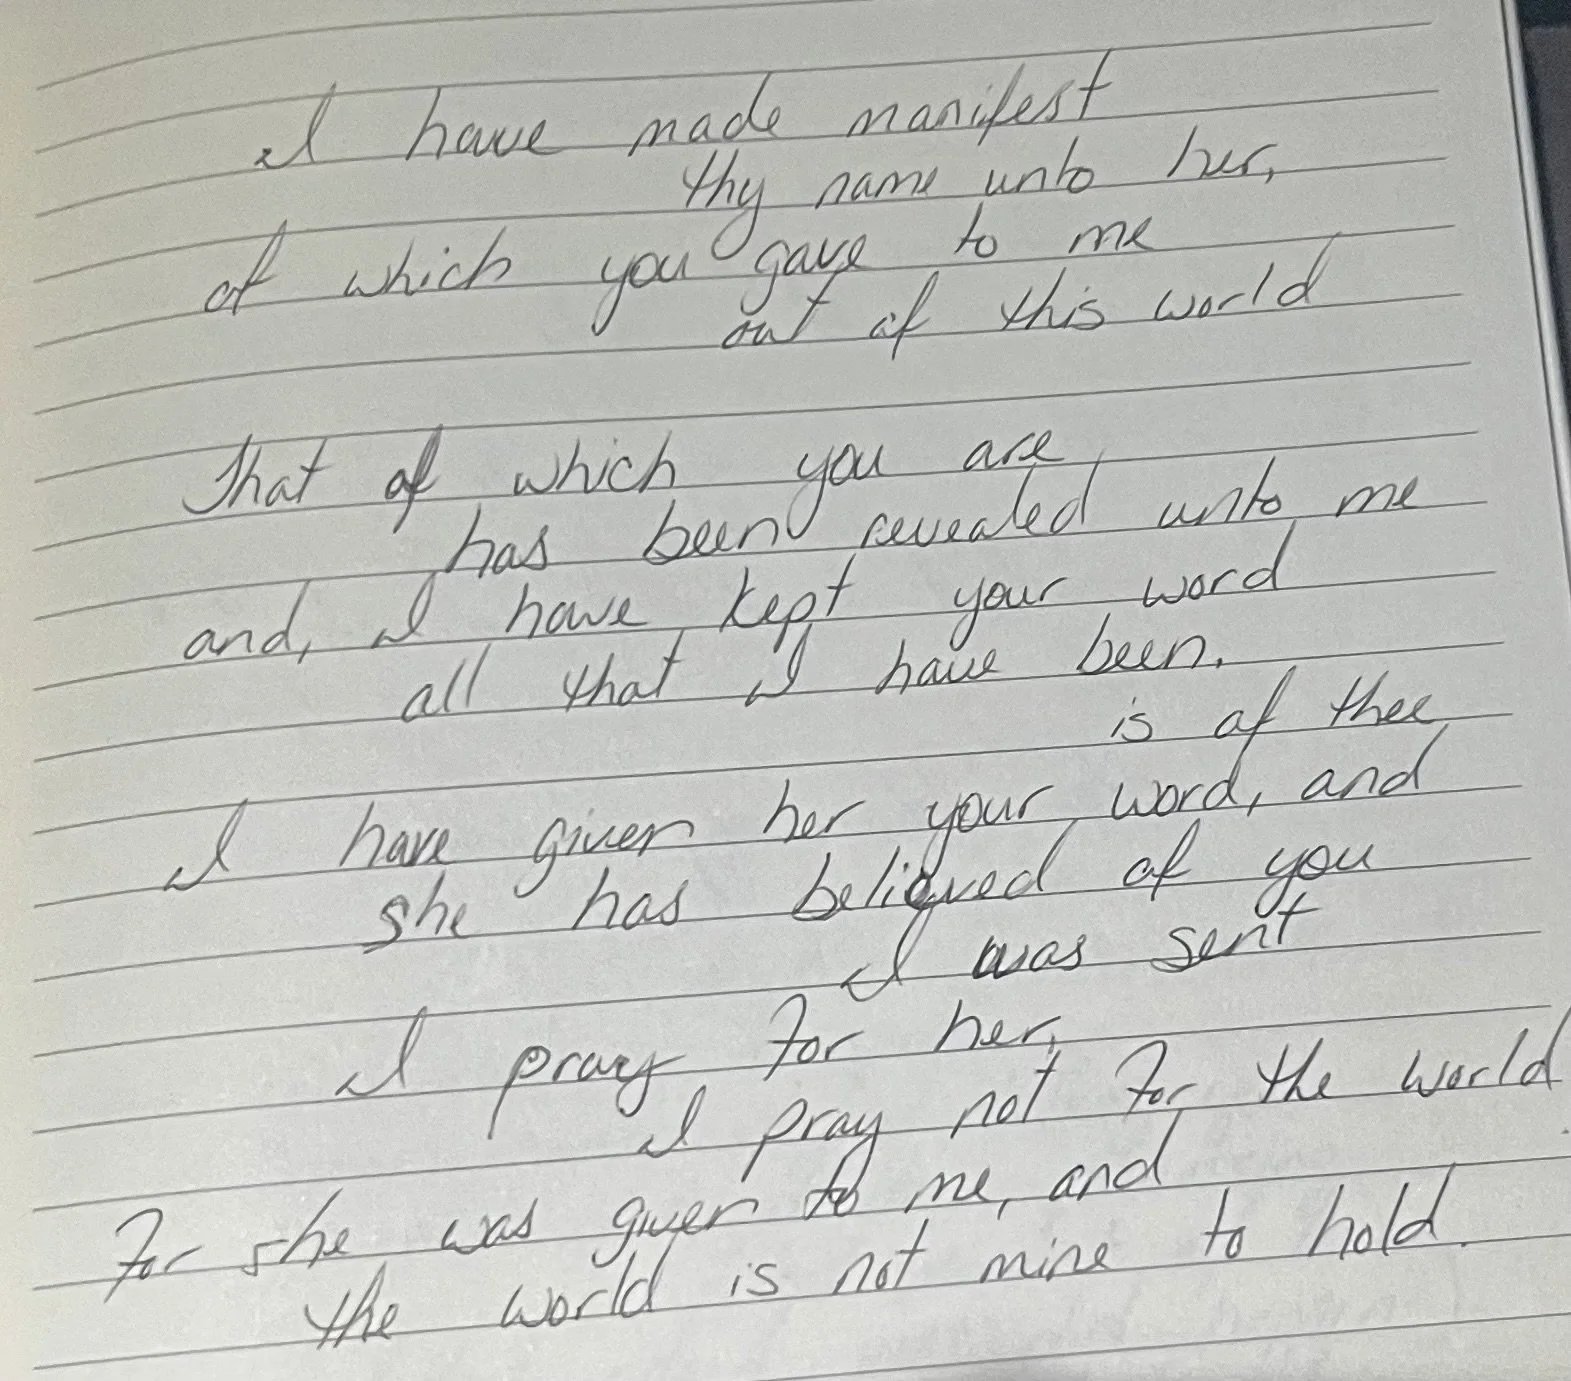 I have made manifest
thy name unto her,
of which you gave to me
out of this world
That of which you are
has been revealed unto me
and, I have kept your word
all that I have been.
is of thee
I have given her your word, and
she has believed of you
I was sent
I pray for her,
I pray not for the world
For she was given to me, and
the world is not mine to hold.